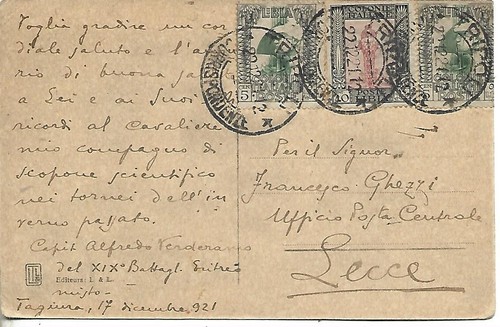 Voglia gradire un cor
diale saluto e l'augu
rio di buona
a Lei e ai Suoi
ricordi al Cavaliere
mio compagno di
scopone scientifico
nei tornei dell'in
verno passato.
Capit Alfredo Verderamo
del XIXº Battagl. Eritreo
Editeurs L & L
misto.
Tagiura, 17 dicembre 921
LIBIA
TRIPOLI
Per il Signor
Francesco Ghezzi
Ufficio Posta Centrale
Lecce